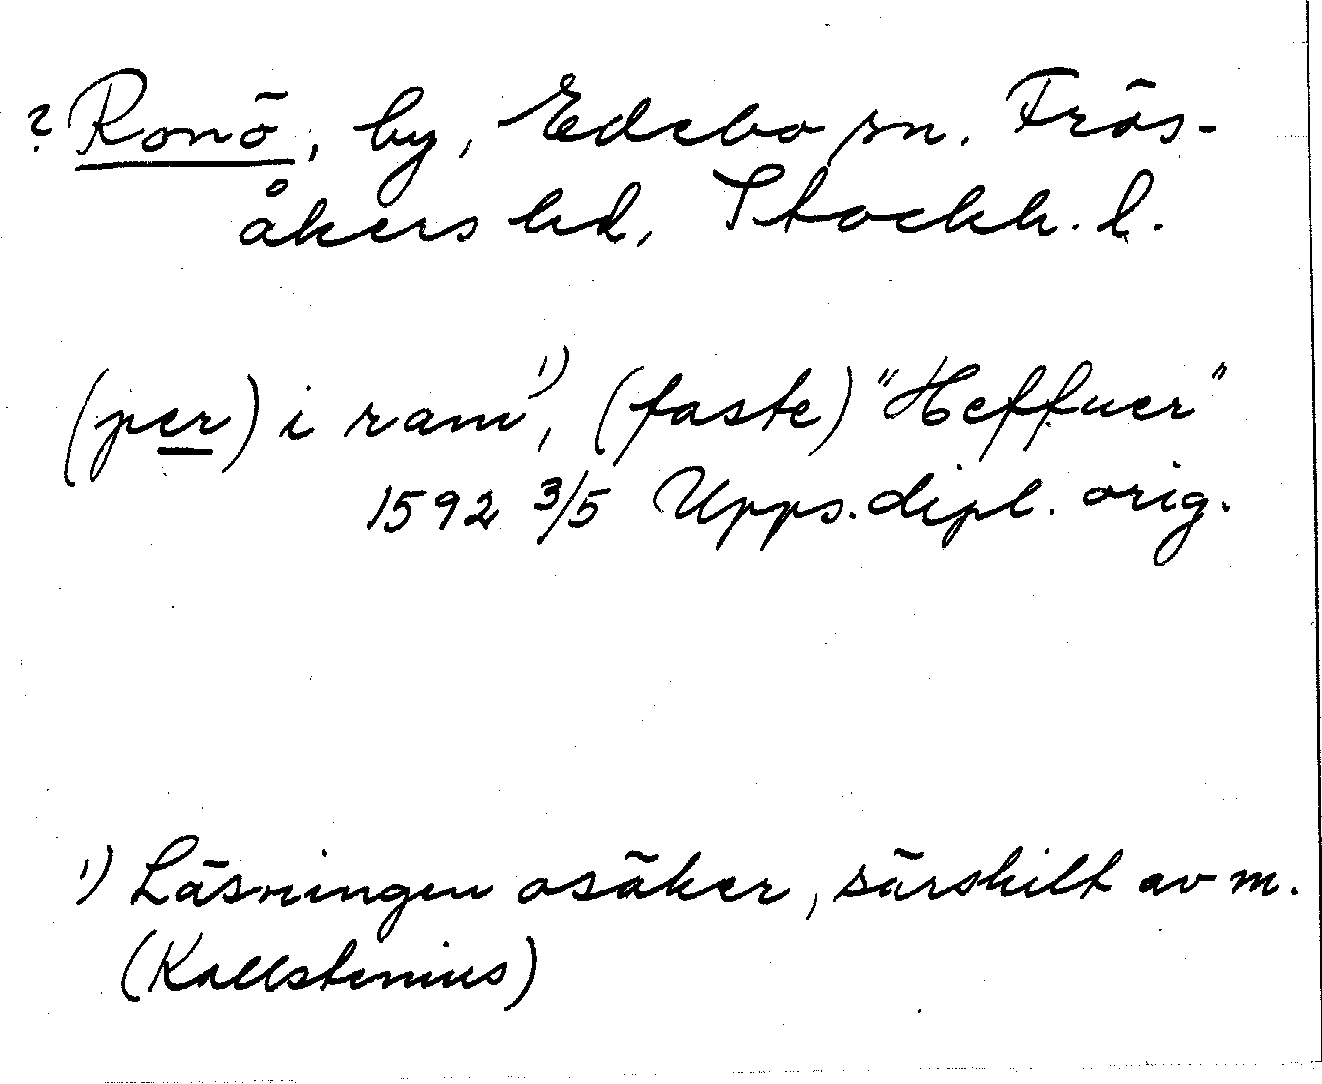 ? Ronö, by, Edebo sn. Frös-
åkers hd, Stockh. l.
(per) i ram¹⁾, (faste) "Heffner"
1592 3/5 Upps. dipl. orig.
¹⁾ Läsningen osäker, särskilt av m.
(Kallstenius)